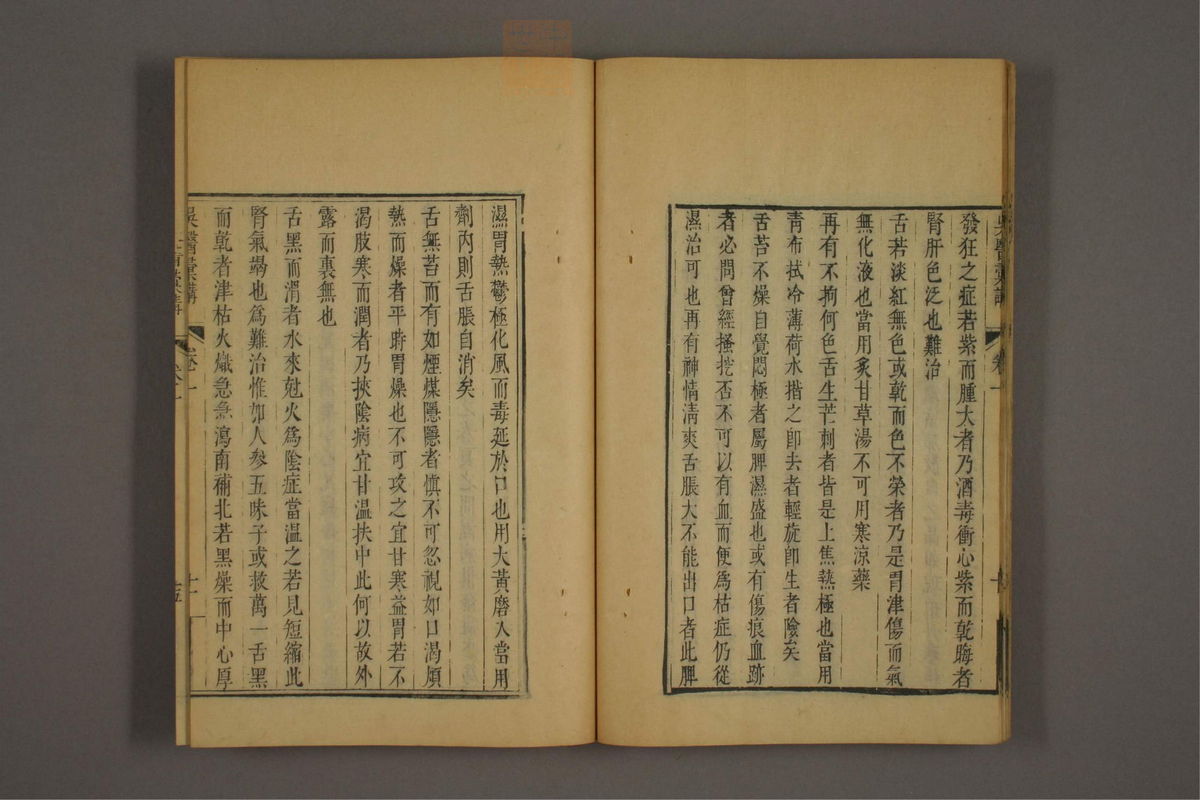 吳醫彙講 卷一 十
發狂之症若紫而腫大者乃酒毒衝心紫而乾晦者
腎肝色泛也難治
舌若淡紅無色或乾而色不榮者乃是胃津傷而氣
無化液也當用炙甘草湯不可用寒涼藥
再有不拘何色舌生芒刺者皆是上焦熱極也當用
青布拭冷薄荷水揩之卽去者輕旋卽生者險矣
舌苔不燥自覺悶極者屬脾濕盛也或有傷痕血跡
者必問曾經搔挖否不可以有血而便爲枯症仍從
濕治可也再有神情清爽舌脹大不能出口者此脾
濕胃熱鬱極化風而毒延於口也用大黃磨入當用
劑內則舌脹自消矣
舌無苔而有如煙煤隱隱者愼不可忽視如口渴煩
熱而燥者平時胃燥也不可攻之宜甘寒益胃若不
渴肢寒而潤者乃挾陰病宜甘溫扶中此何以故外
露而裏無也
舌黑而滑者水來尅火爲陰症當溫之若見短縮此
腎氣竭也爲難治惟加人參五味子或救萬一舌黑
而乾者津枯火熾急急瀉南補北若黑燥而中心厚
吳醫彙講 卷一 十一